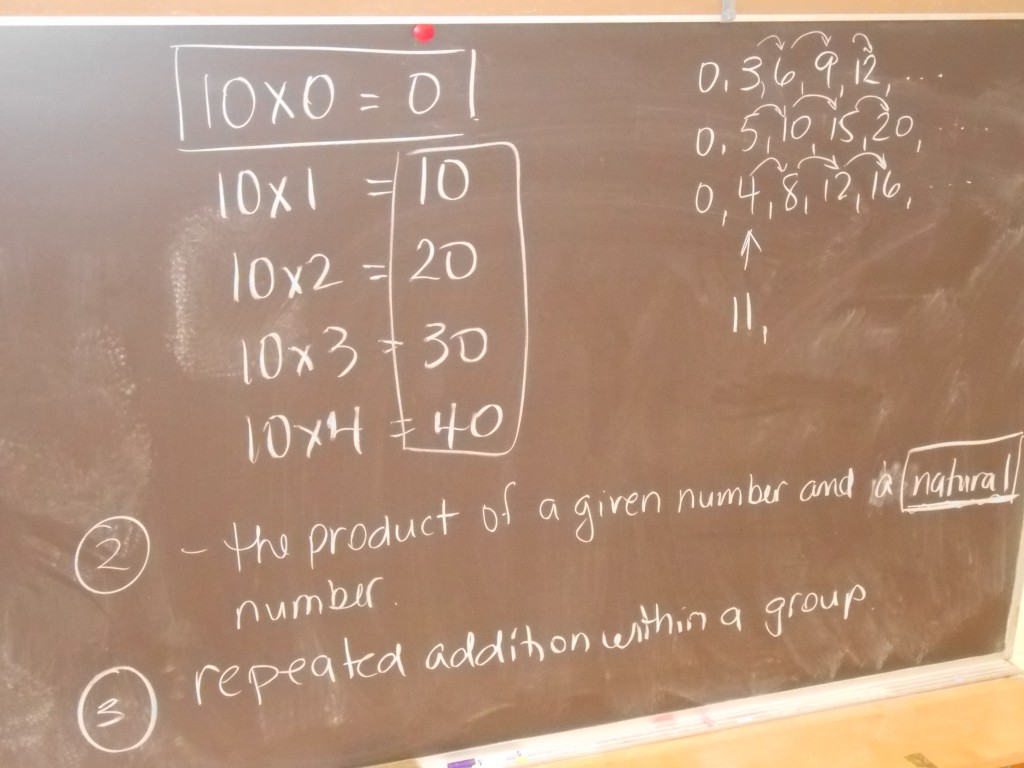 10x0 = 0
10x1 = 10
10x2 = 20
10x3 = 30
10x4 = 40
0, 3, 6, 9, 12, ....
0, 5, 10, 15, 20, ....
0, 4, 8, 12, 16, ....
11,
2 - the product of a given number and a natural
number.
3 repeated addition within a group.